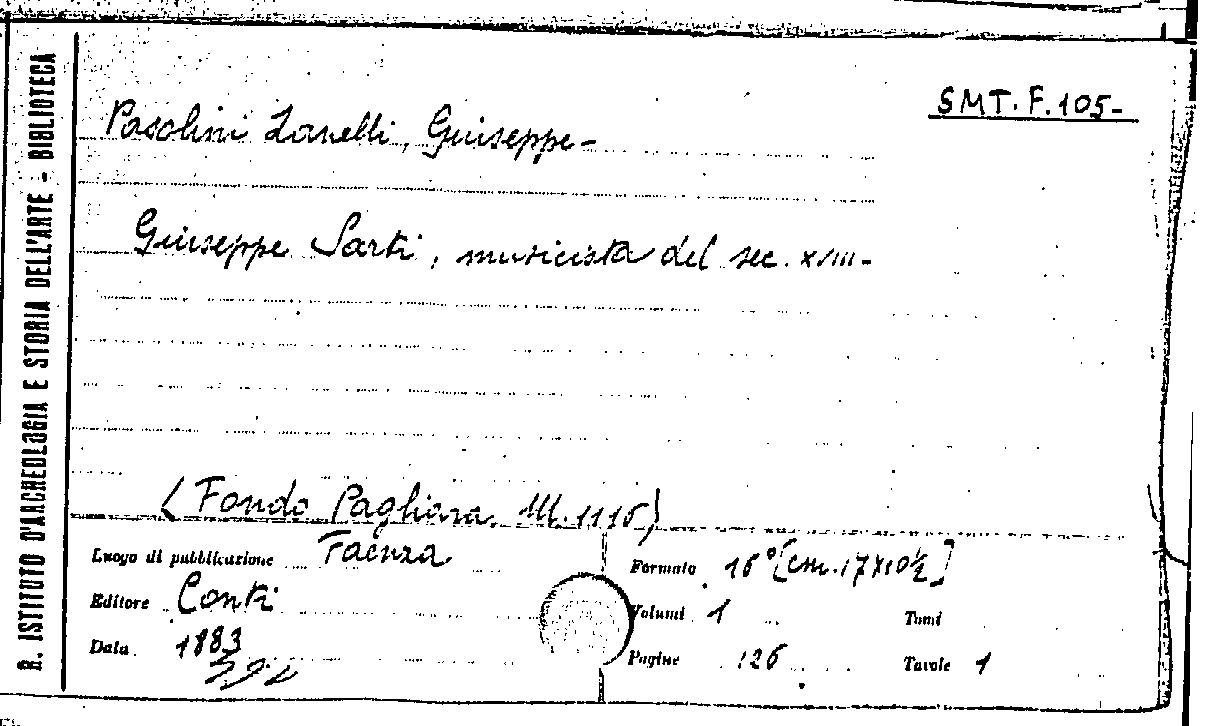 R. ISTITUTO D'ARCHEOLOGIA E STORIA DELL'ARTE - BIBLIOTECA
SMT. F. 105-
Pasolini Zanelli, Giuseppe-
Giuseppe Sarti, musicista del sec. XVIII-
(Fondo Pagliara. M. 1115)
Luogo di pubblicazione Faenza
Formato 16° [cm. 17x10½]
Editore Conti
Volumi 1 Tomi
Data 1883
Pagine 126 Tavole 1